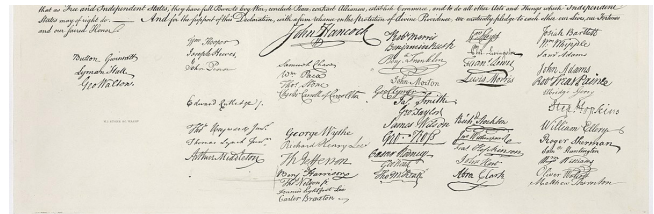 that as Free and Independent States, they have full Power to levy War, conclude Peace, contract Alliances, establish Commerce, and to do all other Acts and Things which Independent
States may of right do. — And for the support of this Declaration, with a firm reliance on the Protection of divine Providence, we mutually pledge to each other our Lives, our Fortunes
and our sacred Honor.
Button Gwinnett
Lyman Hall
Geo Walton.
Wm Hooper
Joseph Hewes,
John Penn
Edward Rutledge
Thos Heyward Junr.
Thomas Lynch Junr.
Arthur Middleton
John Hancock
Samuel Chase
Wm Paca
Thos Stone
Charles Carroll of Carrollton
George Wythe
Richard Henry Lee
Th Jefferson
Benj Harrison
Thos Nelson jr.
Francis Lightfoot Lee
Carter Braxton
Robt Morris
Benjamin Rush
Benj. Franklin
John Morton
Geo Clymer
Jas. Smith
Geo. Taylor
James Wilson
Geo. Ross
Caesar Rodney
Geo Read
Tho M:Kean
Wm Floyd
Phil. Livingston
Frans. Lewis
Lewis Morris
Richd. Stockton
Jno Witherspoon
Fras. Hopkinson
John Hart
Abra Clark
Josiah Bartlett
Wm Whipple
Saml Adams
John Adams
Robt Treat Paine
Elbridge Gerry
Step. Hopkins
William Ellery
Roger Sherman
Saml Huntington
Wm Williams
Oliver Wolcott
Matthew Thornton